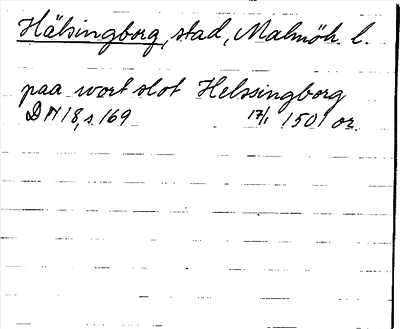 Hälsingborg, stad, Malmöh. l.
paa wort slot Helssingborg
DN 18, s. 169 17/1 1501 or.